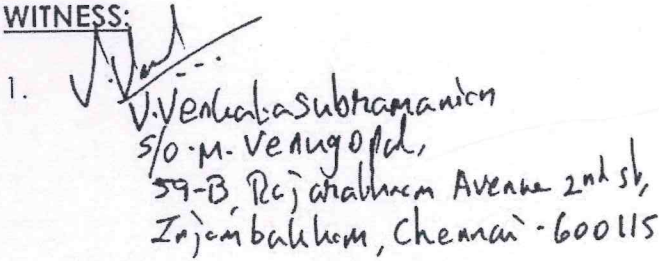 WITNESS:
1.
V. Venkatasubramanian
S/O. M. Venugopal,
59-B, Rajarathnam Avenue 2nd st,
Injambakkam, Chennai - 600115